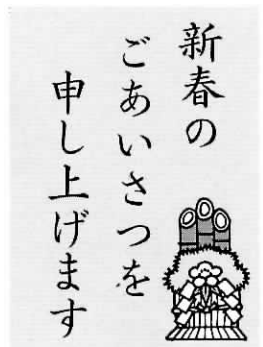 新春の
ごあいさつを
申し上げます